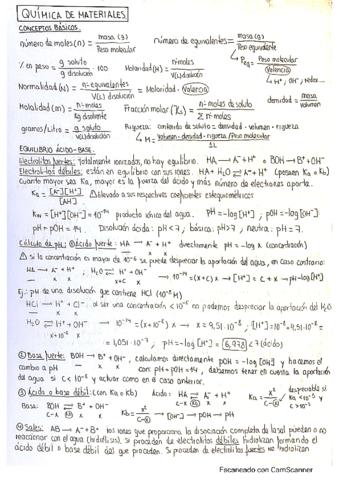 QUÍMICA DE MATERIALES
CONCEPTOS BÁSICOS.
número de moles (n) = masa (g) / Peso molecular
número de equivalentes = masa (g) / Peso equivalente
Peq = Peso molecular / (Valencia)
H⁺, OH⁻, redox...
% peso = g soluto / g disolución · 100
Molaridad (M) = nº moles / V(L) disolución
Normalidad (N) = nº equivalentes / V(L) disolución = Molaridad · Valencia
Molalidad (m) = nº moles / Kg disolvente
Fracción molar (Xs) = nº moles soluto / Σ nº moles
densidad = masa / volumen
gramos/litro = g soluto / V(L) disolución
Riqueza: contenido de soluto = densidad · volumen · riqueza
M = Volumen · densidad · riqueza / Peso molecular / 1L
EQUILIBRIO ÁCIDO-BASE.
Electrolitos fuertes: totalmente ionizados, no hay equilibrio. HA → A⁻ + H⁺ o BOH → B⁺ + OH⁻
Electrolitos débiles: están en equilibrio con sus iones. HA + H₂O ⇌ A⁻ + H⁺ (poseen Ka o Kb)
Cuanto mayor sea Ka, mayor es la fuerza del ácido y más número de electrones aporta.
Ka = [A⁻][H⁺] / [HA] ⚠ Elevado a sus respectivos coeficientes estequiométricos
Kw = [H⁺][OH⁻] = 10⁻¹⁴ producto iónico del agua. pH = -log[H⁺] ; pOH = -log[OH⁻]
pH + pOH = 14. Disolución ácida: pH < 7; básica: pH > 7; neutra: pH = 7.
Cálculo de pH: ① Ácido fuerte: HA → A⁻ + H⁺ directamente pH = -log x (concentración)
x x
⚠ si la concentración es mayor de 10⁻⁶ se puede despreciar la aportación del agua, en caso contrario:
HA → A⁻ + H⁺ ; H₂O ⇌ H⁺ + OH⁻ → 10⁻¹⁴ = (x+c) x → [H⁺] = c + x → pH = -log[H⁺]
Ej.: pH de una disolución que contiene HCl (10⁻⁸ M)
HCl → H⁺ + Cl⁻ al ser una concentración < 10⁻⁶ no podemos despreciar la aportación del H₂O
H₂O ⇌ H⁺ + OH⁻ → 10⁻¹⁴ = (x + 10⁻⁸) · x → x = 9,51·10⁻⁸ ; [H⁺] = 10⁻⁸ + 9,51·10⁻⁸ =
= 1,051·10⁻⁷ ; pH = -log[H⁺] = 6,978 < 7 (ácido)
② Base fuerte: BOH → B⁺ + OH⁻, calculamos directamente pOH = -log[OH⁻] y hacemos el
cambio a pH con: pH + pOH = 14, debemos tener en cuenta la aportación
del agua si C < 10⁻⁶ y actuar como en el caso anterior.
③ Ácido o base débil: (con Ka o Kb) Ácido: HA ⇌ A⁻ + H⁺ Ka = x² / C-x
Base: BOH ⇌ B⁺ + OH⁻ Kb = x² / C-x → [OH⁻] → pOH → pH
④ Sales: AB → A⁻ + B⁺ los iones que proporciona la disociación completa de la sal pueden o no
reaccionar con el agua (hidrólisis). Si proceden de electrolitos débiles hidrolizan formando el
ácido débil o base débil del que proceden. Si proceden de electrolitos fuertes no hidrolizan.
Escaneado con CamScanner